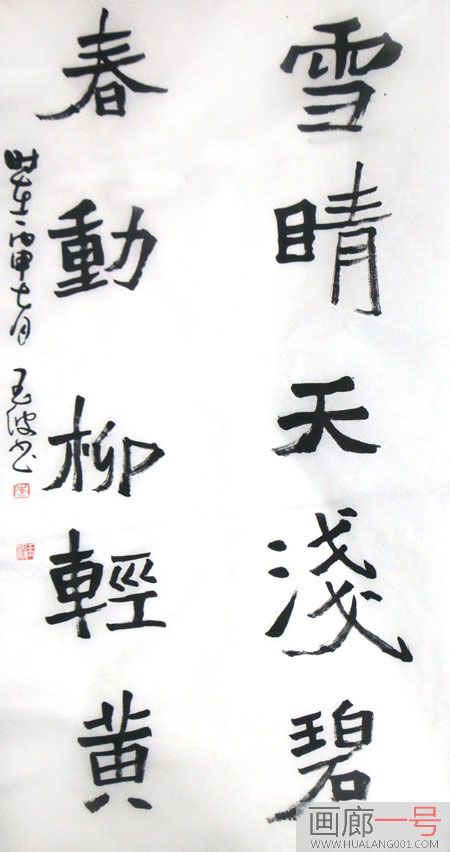 雪晴天淺碧
春動柳輕黄
时在丙申七月 王波书
画廊一号
WWW.HUALANG001.COM